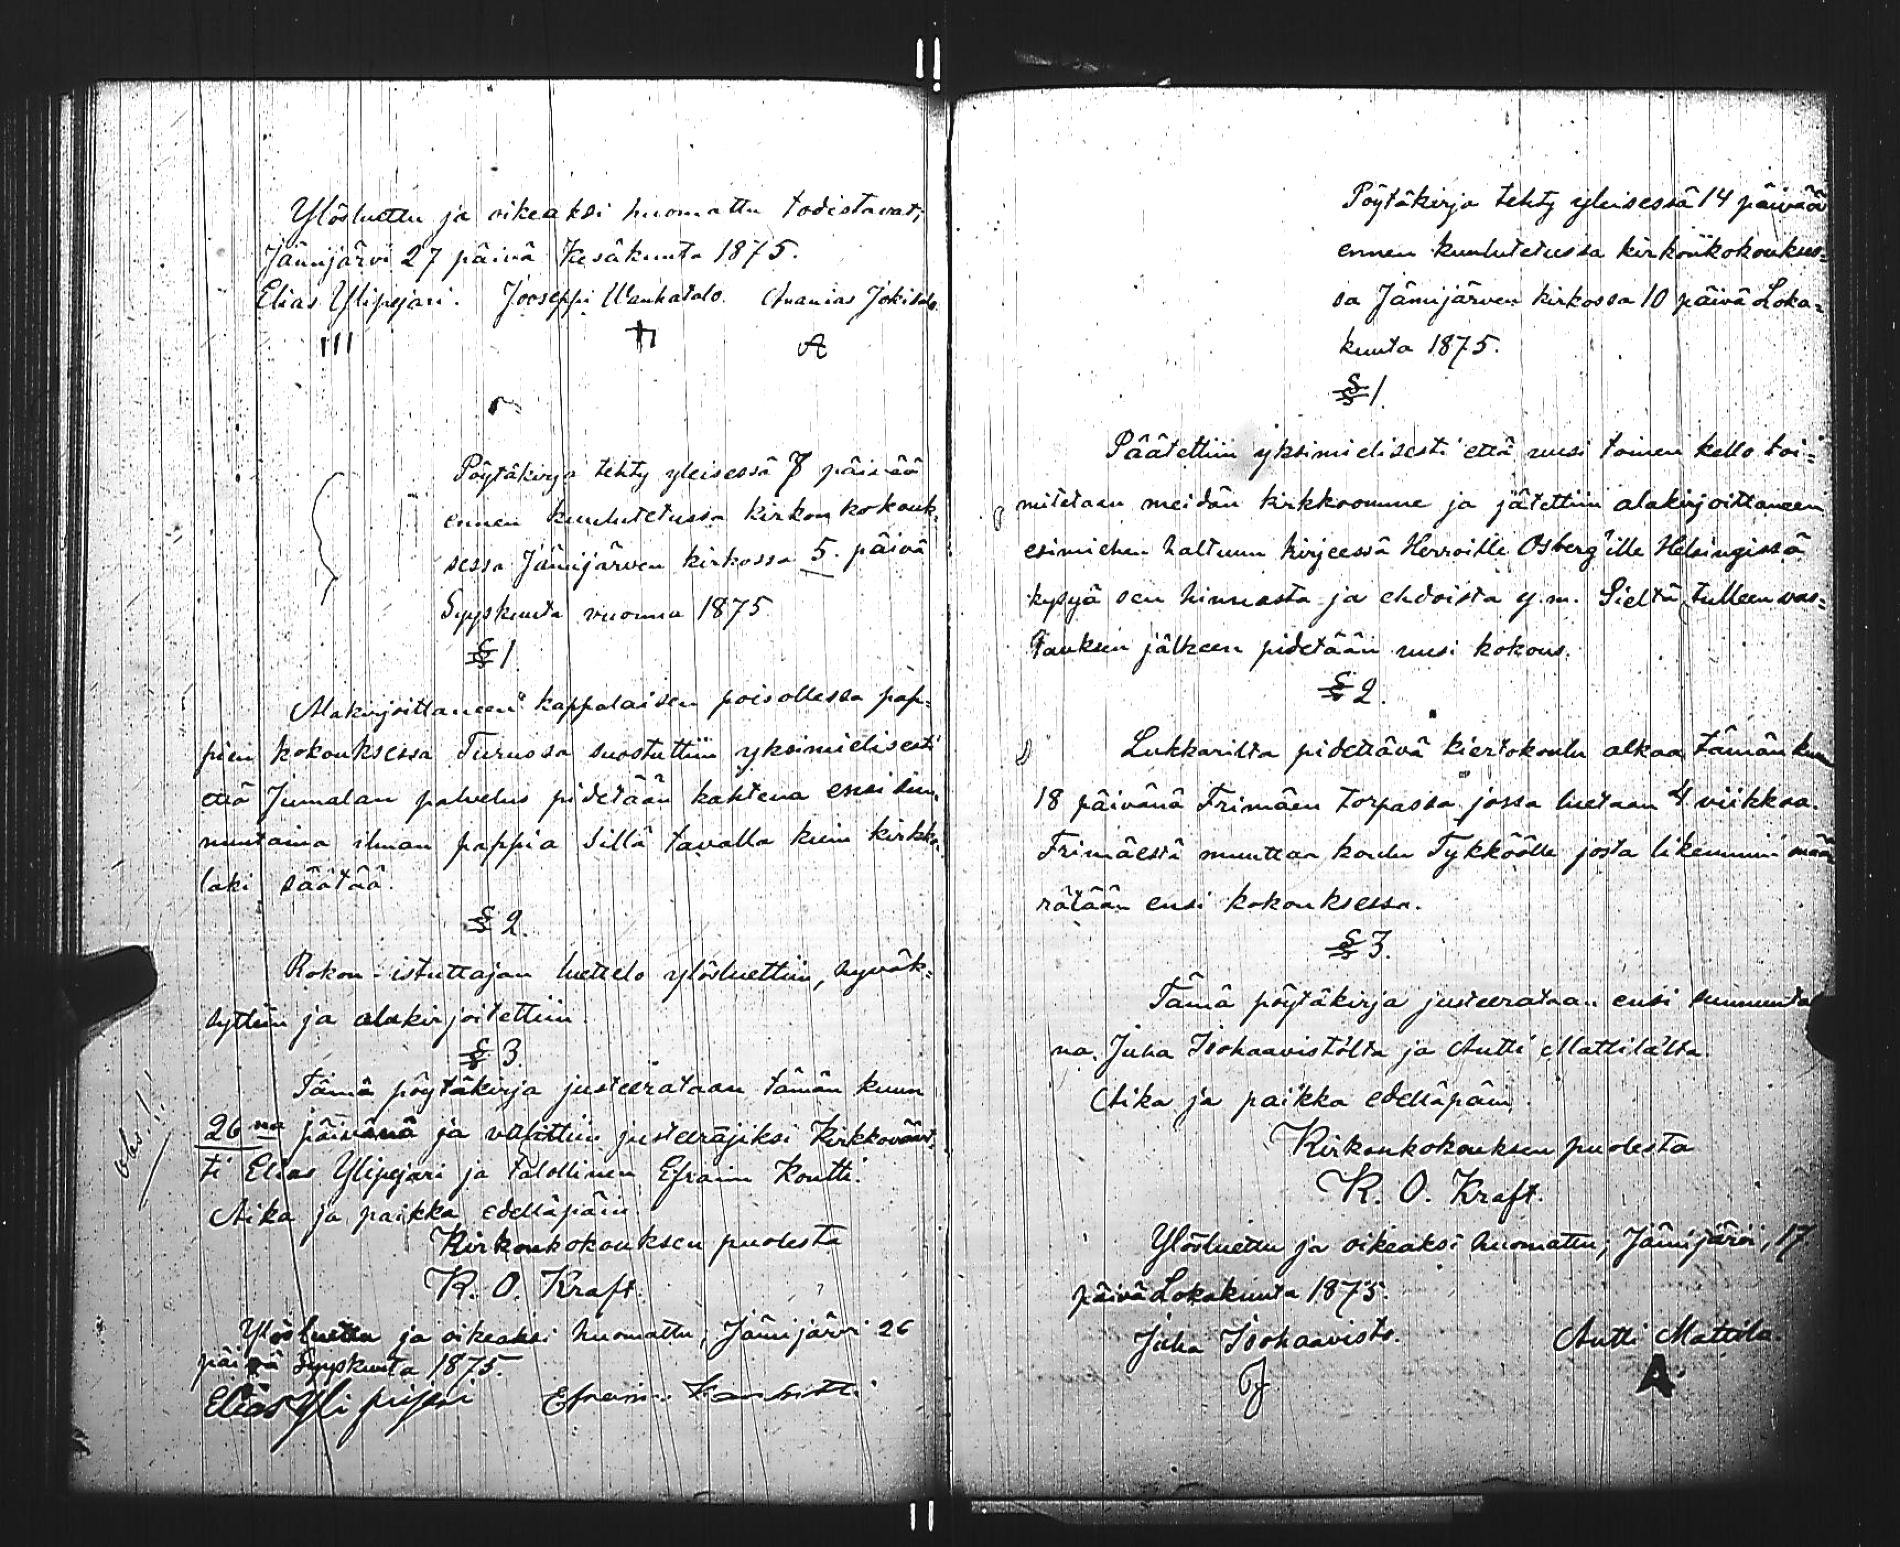 Ylösluettu ja oikeaksi huomattu todistavat;
Jämijärvi 27 päivä Kesäkuuta 1875.
Elias Ylipejari. Jooseppi Wanhatalo. Ananias Jokisalo.
III H A
Pöytäkirja tehty yleisessä 7 päivää
ennen kuulutetussa kirkon kokouk-
sessa Jämijärven kirkossa 5. päivä
Syyskuuta vuonna 1875
§ 1
Allakirjoittaneen kappalaisen poisollessa pap-
pien kokouksessa Turussa suostuttiin yksimielisesti
että Jumalan palvelus pidetään kahtena ensi sun-
nuntaina ilman pappia sillä tavalla kuin kirkko-
laki säätää.
§ 2.
Rokon-istuttajan luettelo ylösluettiin, hyväk-
syttiin ja alakirjoitettiin.
§ 3.
Tämä pöytäkirja justeerataan tämän kuun
26na päivänä ja valittiin justeerajiksi Kirkkoväär-
ti Elias Ylipejari ja talollinen Efraim Kontti.
Aika ja paikka edelläpäin.
obs.!!
Kirkonkokouksen puolesta
K. O. Kraft.
Ylösluettu ja oikeaksi huomattu, Jämijärvi 26
päivä Syyskuuta 1875.
Elias Yli Efraim
Pöytäkirja tehty yleisessä 14 päivää
ennen kuulutetussa kirkonkokoukses-
sa Jämijärven kirkossa 10 päivä Loka-
kuuta 1875.
§ 1.
Päätettiin yksimielisesti että uusi toinen kello toi-
mitetaan meidän kirkkoomme ja jätettiin alakirjoittaneen
esimiehen haltuun kirjeessä Herroille Osberg'ille Helsingissä
kysyä sen hinnasta ja ehdoista y.m. Sieltä tulleen vas-
tauksen jälkeen pidetään uusi kokous.
§ 2.
Lukkarilta pidettävä kiertokoulu alkaa tämän kuun
18 päivänä Frimäen torpassa jossa luetaan 4 viikkoa.
Frimäestä muuttaa koulu Tykköölle josta likemmin mää
rätään ensi kokouksessa.
§ 3.
Tämä pöytäkirja justeerataan ensi sunnunta
na. Juha Isohaavistolta ja Antti Mattilalta.
Aika ja paikka edelläpäin.
Kirkonkokouksen puolesta
K. O. Kraft.
Ylösluettu ja oikeaksi huomattu; Jämijärvi, 17
päivä Lokakuuta 1875.
Juha Isohaavisto. Antti Mattila.
A